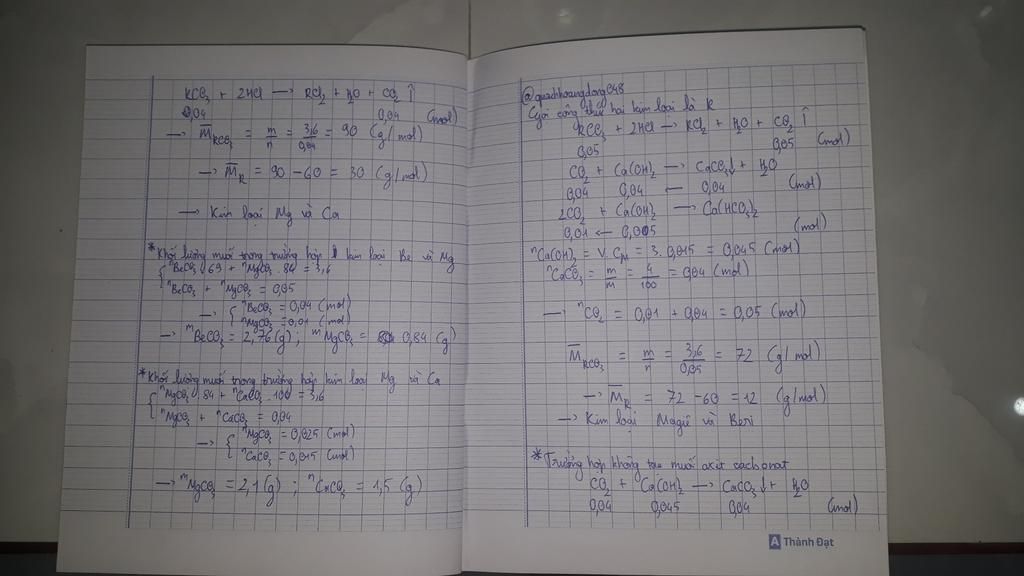 RCO₃ + 2HCl → RCl₂ + H₂O + CO₂ ↑
0,04 0,04 (mol)
→ M̅ RCO₃ = m/n = 3,6/0,04 = 90 (g/mol)
→ M̅ R = 90 - 60 = 30 (g/mol)
→ Kim loại Mg và Ca
* Khối lượng muối trong trường hợp kim loại Be và Mg
{ nBeCO₃.69 + nMgCO₃.84 = 3,6
nBeCO₃ + nMgCO₃ = 0,05
→ { nBeCO₃ = 0,04 (mol)
nMgCO₃ = 0,01 (mol)
→ mBeCO₃ = 2,76 (g) ; mMgCO₃ = 0,84 (g)
* Khối lượng muối trong trường hợp kim loại Mg và Ca
{ nMgCO₃.84 + nCaCO₃.100 = 3,6
nMgCO₃ + nCaCO₃ = 0,04
→ { nMgCO₃ = 0,025 (mol)
nCaCO₃ = 0,015 (mol)
→ mMgCO₃ = 2,1 (g) ; mCaCO₃ = 1,5 (g)
Gọi công thức hai kim loại là R
RCO₃ + 2HCl → RCl₂ + H₂O + CO₂ ↑
0,05 0,05 (mol)
CO₂ + Ca(OH)₂ → CaCO₃↓ + H₂O
0,04 0,04 ← 0,04 (mol)
2CO₂ + Ca(OH)₂ → Ca(HCO₃)₂
0,01 ← 0,005 (mol)
nCa(OH)₂ = V.CM = 3.0,015 = 0,045 (mol)
nCaCO₃ = m/M = 4/100 = 0,04 (mol)
→ nCO₂ = 0,01 + 0,04 = 0,05 (mol)
M̅ RCO₃ = m/n = 3,6/0,05 = 72 (g/mol)
→ M̅ R = 72 - 60 = 12 (g/mol)
→ Kim loại Magiê và Beri
* Trường hợp không tạo muối axit cacbonat
CO₂ + Ca(OH)₂ → CaCO₃↓ + H₂O
0,04 0,045 0,04 (mol)
Thành Đạt